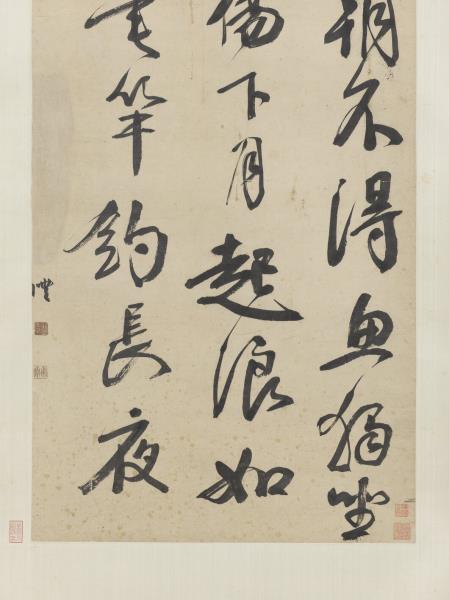 不得魚獨坐
下月起浪如
竿釣長夜